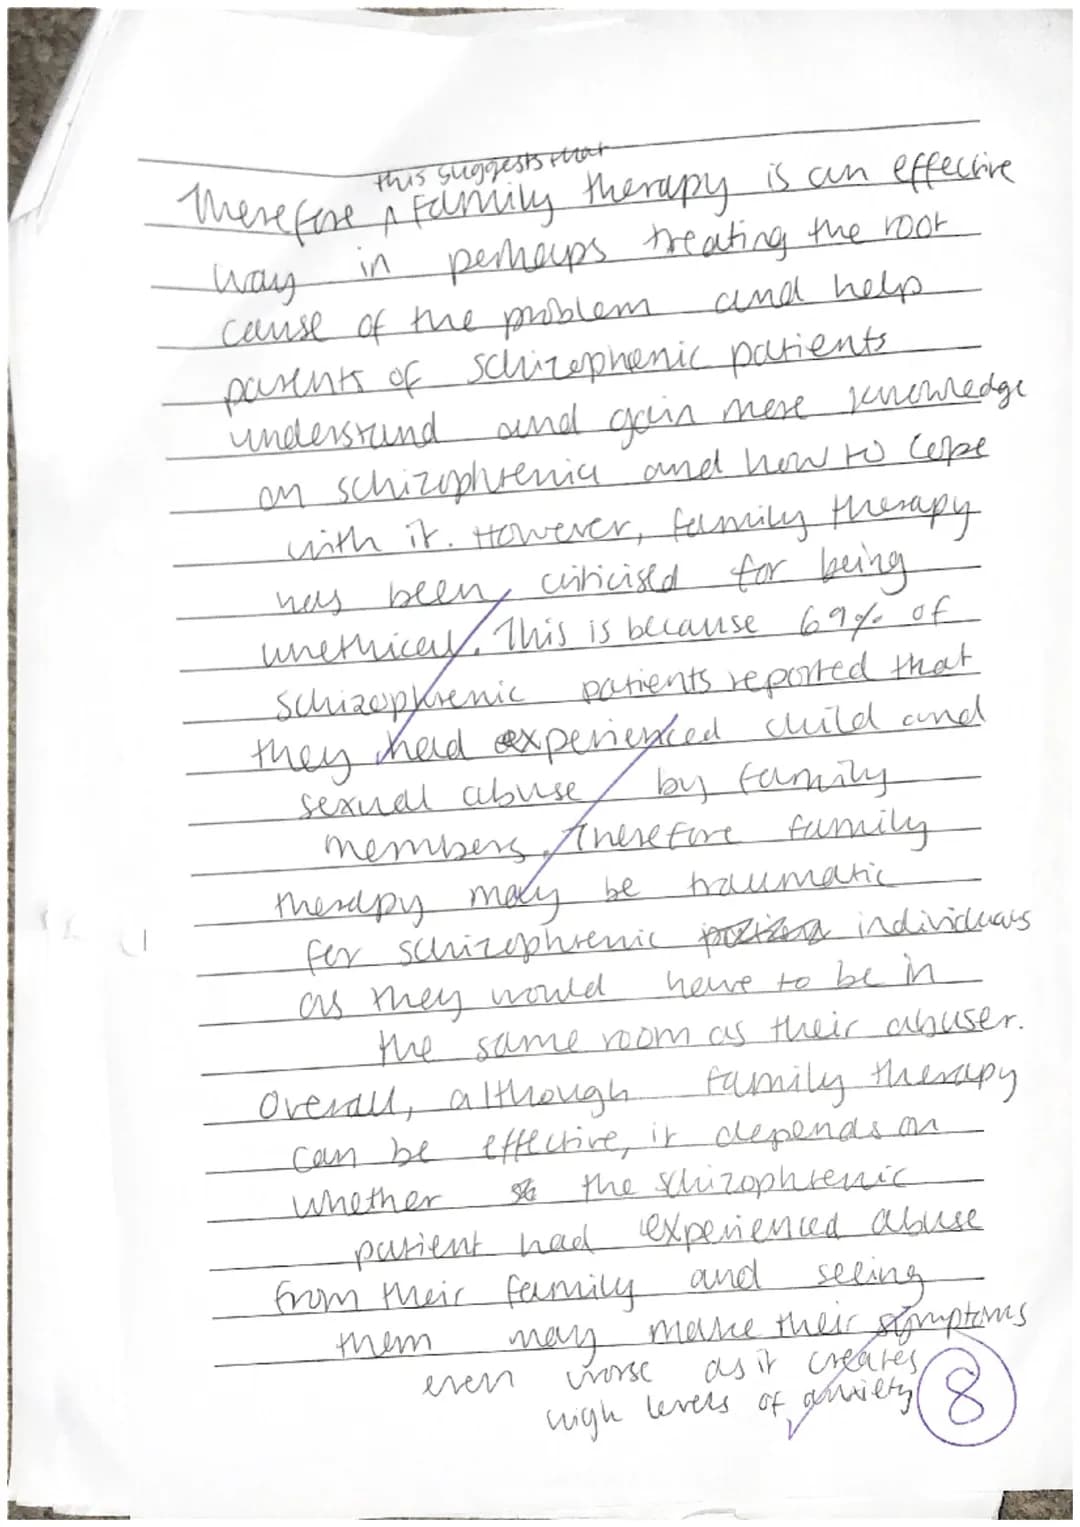 this suggests that
Therefore ^ family therapy is an effective
way in perhaps treating the root
cause of the problem and help
parents of schizophrenic patients
understand and gain more knowledge
on schizophrenia and how to cope
with it. However, family therapy
has been criticised for being
unethical. This is because 69% of
schizophrenic patients reported that
they had experienced child and
sexual abuse by family
members. Therefore family
therapy may be traumatic
for schizophrenic individuals
as they would have to be in
the same room as their abuser.
Overall, although family therapy
can be effective, it depends on
whether the schizophrenic
patient had experienced abuse
from their family and seeing
them may make their symptoms
even worse as it creates
high levels of anxiety
8